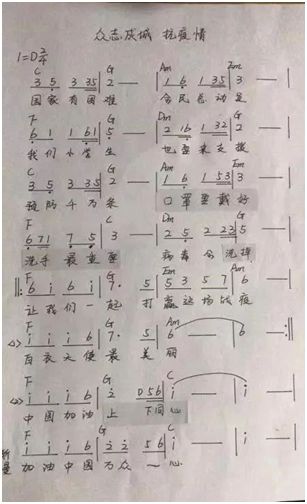 众志成城 抗疫情
1=D 2/4
C G Am Em
3 5 3 35 | 2 — | 1 6 1 35 | 3 — |
国家有困难 全民总动员
F G Dm G
6 1 1 61 | 5 — | 2 16 1 32 | 2 — |
我们小学生 也要来支援
C G Am Em
3 5 3 35 | 2 — | 1 6 1 53 | 3 — |
预防千万条 口罩要戴好
F G C Dm G
6 71 7 5 | 3 — | 2 5 2 23 | 5 — |
洗手最重要 病毒全洗掉
F G Em Am
6 i 6 i | 7· 5 | 5 3 5 7 | 6 — |
让我们一起 打赢这场战疫
F G Am
i i i 6 | 7· 5 | 6 — | 6 — :||
白衣天使最美丽
F G C
i i i 6 | 2 0 56 | i — | i — |
中国加油上下同心
F G C
i i i 6 | 2 2 56 | i — | i — |
加油中国万众一心